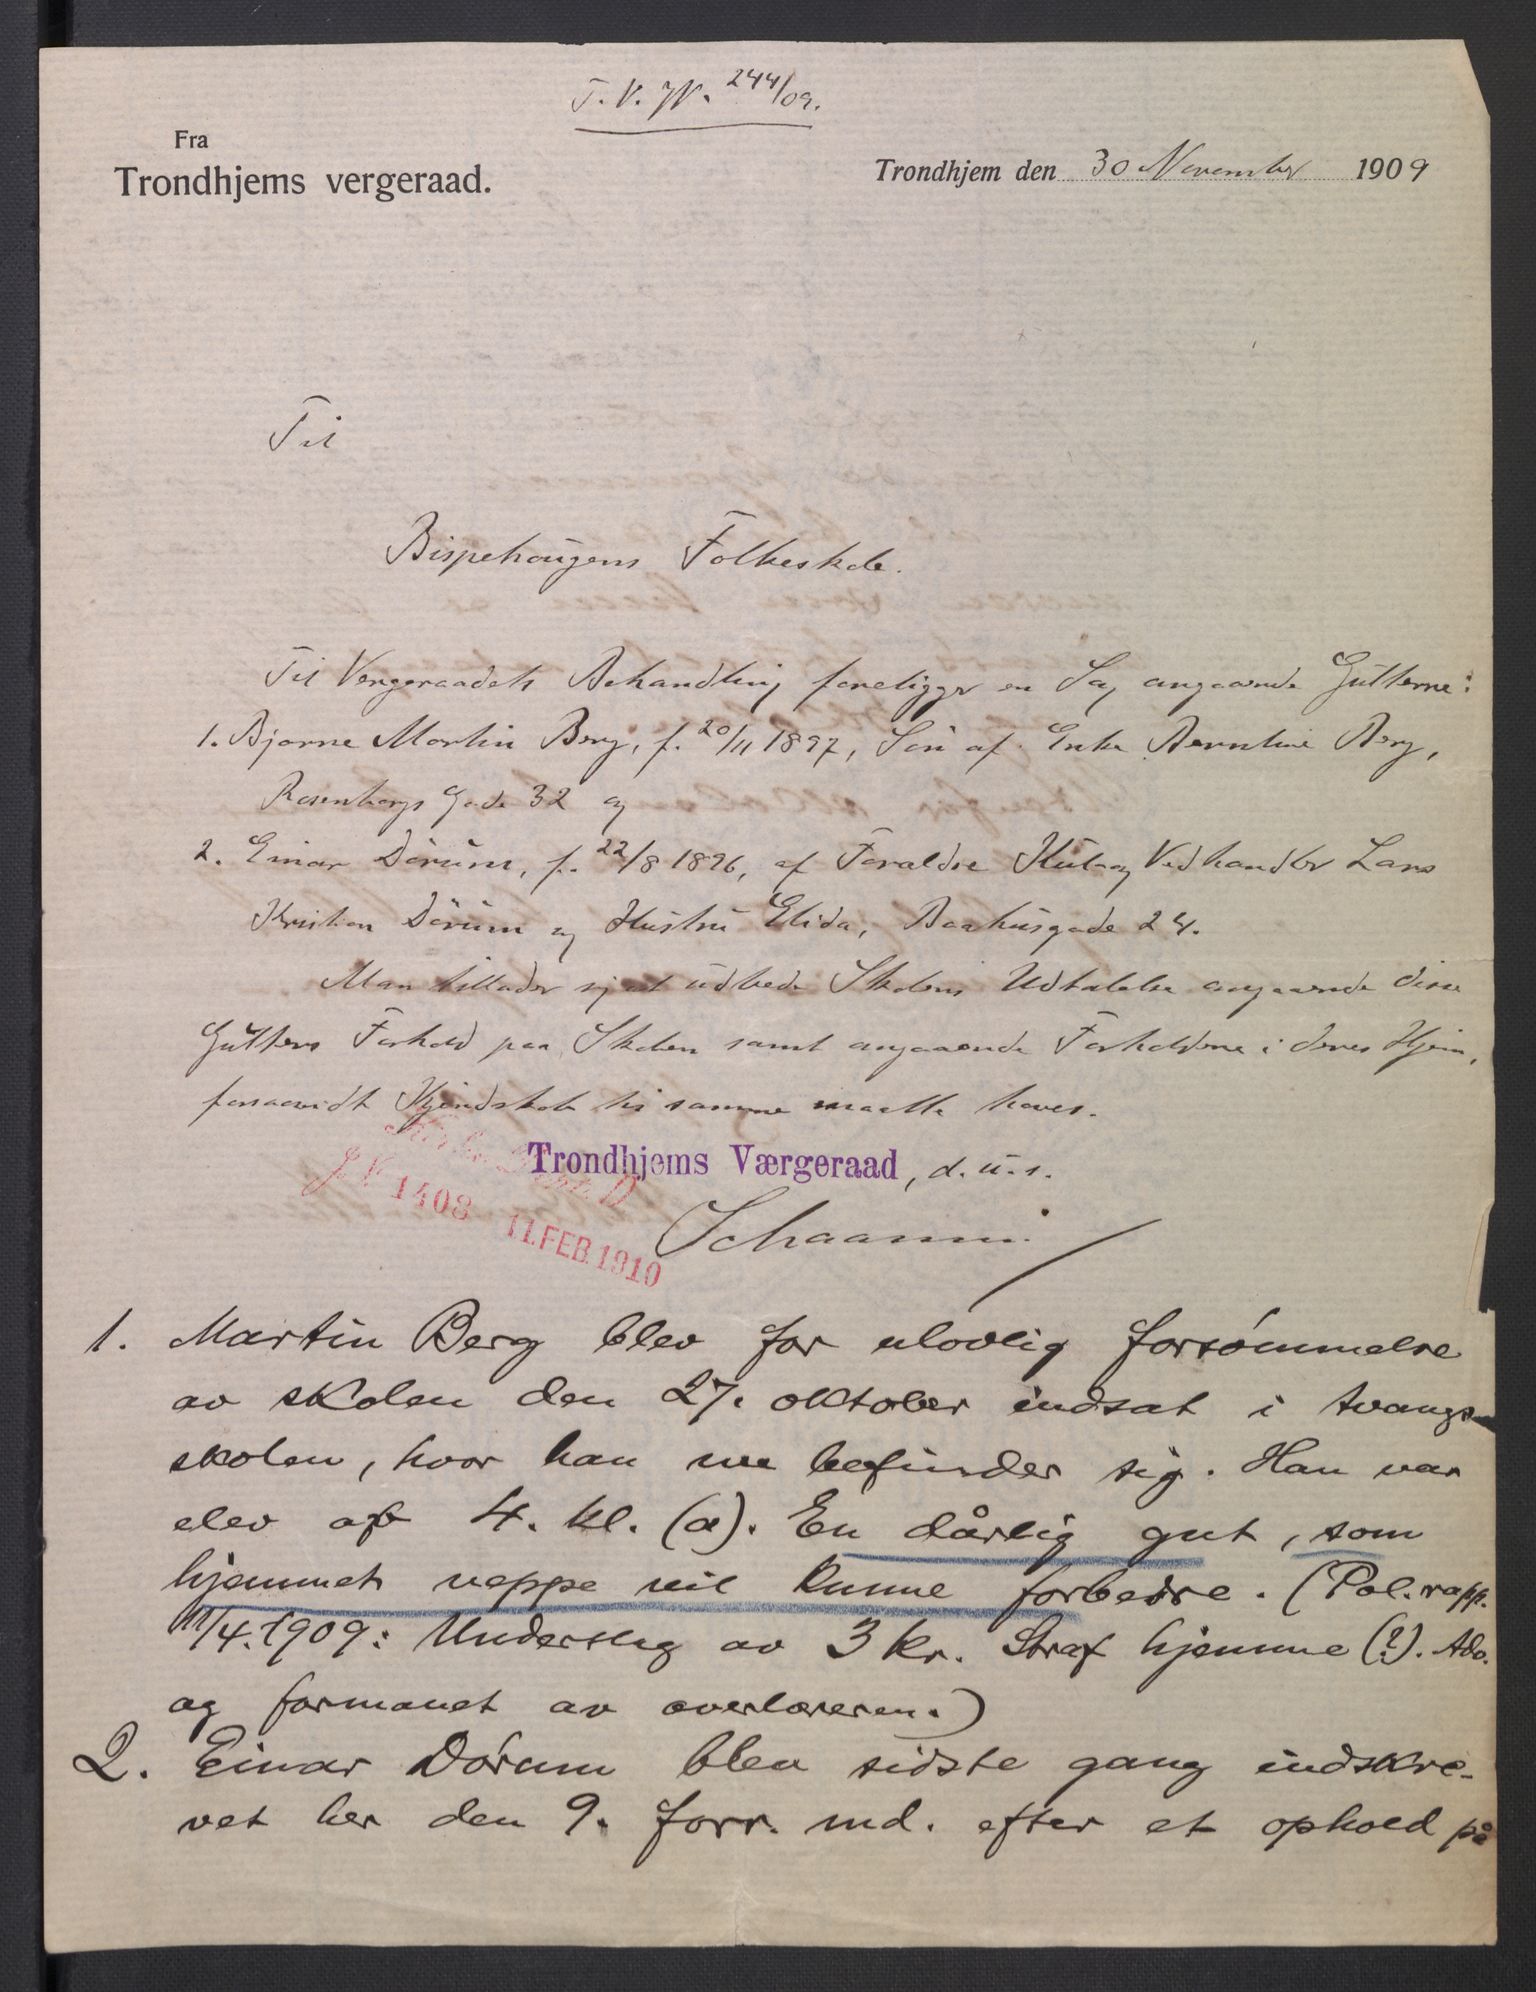 T. V. N. 244/09.
Fra
Trondhjems vergeraad.
Trondhjem den 30 November 1909
Til
Bispehaugens Folkeskole.
Til Vergeraadets Behandling foreligger en Sag angaaende Gutterne:
1. Bjarne Martin Berg, f. 20/11 1897, Søn af Enke Berntine Berg,
Rosenborgs Gade 32 og
2. Einar Dørum, f. 22/8 1896, af Forældre Kul og Vedhandler Lars
Kristian Dørum og Hustru Elida, Baahusgade 24.
Man tillader sig at udbede Skolens Udtalelse angaaende disse
Gutters Forhold paa Skolen samt angaaende Forholdene i deres Hjem,
forsaavidt Kjendskab til samme maatte haves.
Trondhjems Værgeraad, d. u. s.
J. N. 1408 11. FEB. 1910
Schaanning
1. Martin Berg blev for ulovlig forsømmelse
av skolen den 27. oktober indsat i tvangs-
skolen, hvor han nu befinder sig. Han var
elev af 4. kl. (a). En dårlig gut, som
hjemmet neppe vil kunne forbedre. (Pol. rapp.
11/4. 1909: Underslag av 3 kr. Straf hjemme (?). Adv.
og formanet av overlæreren.)
2. Einar Dørum blev sidste gang indskre-
vet her den 9. forr. md. efter et ophold på